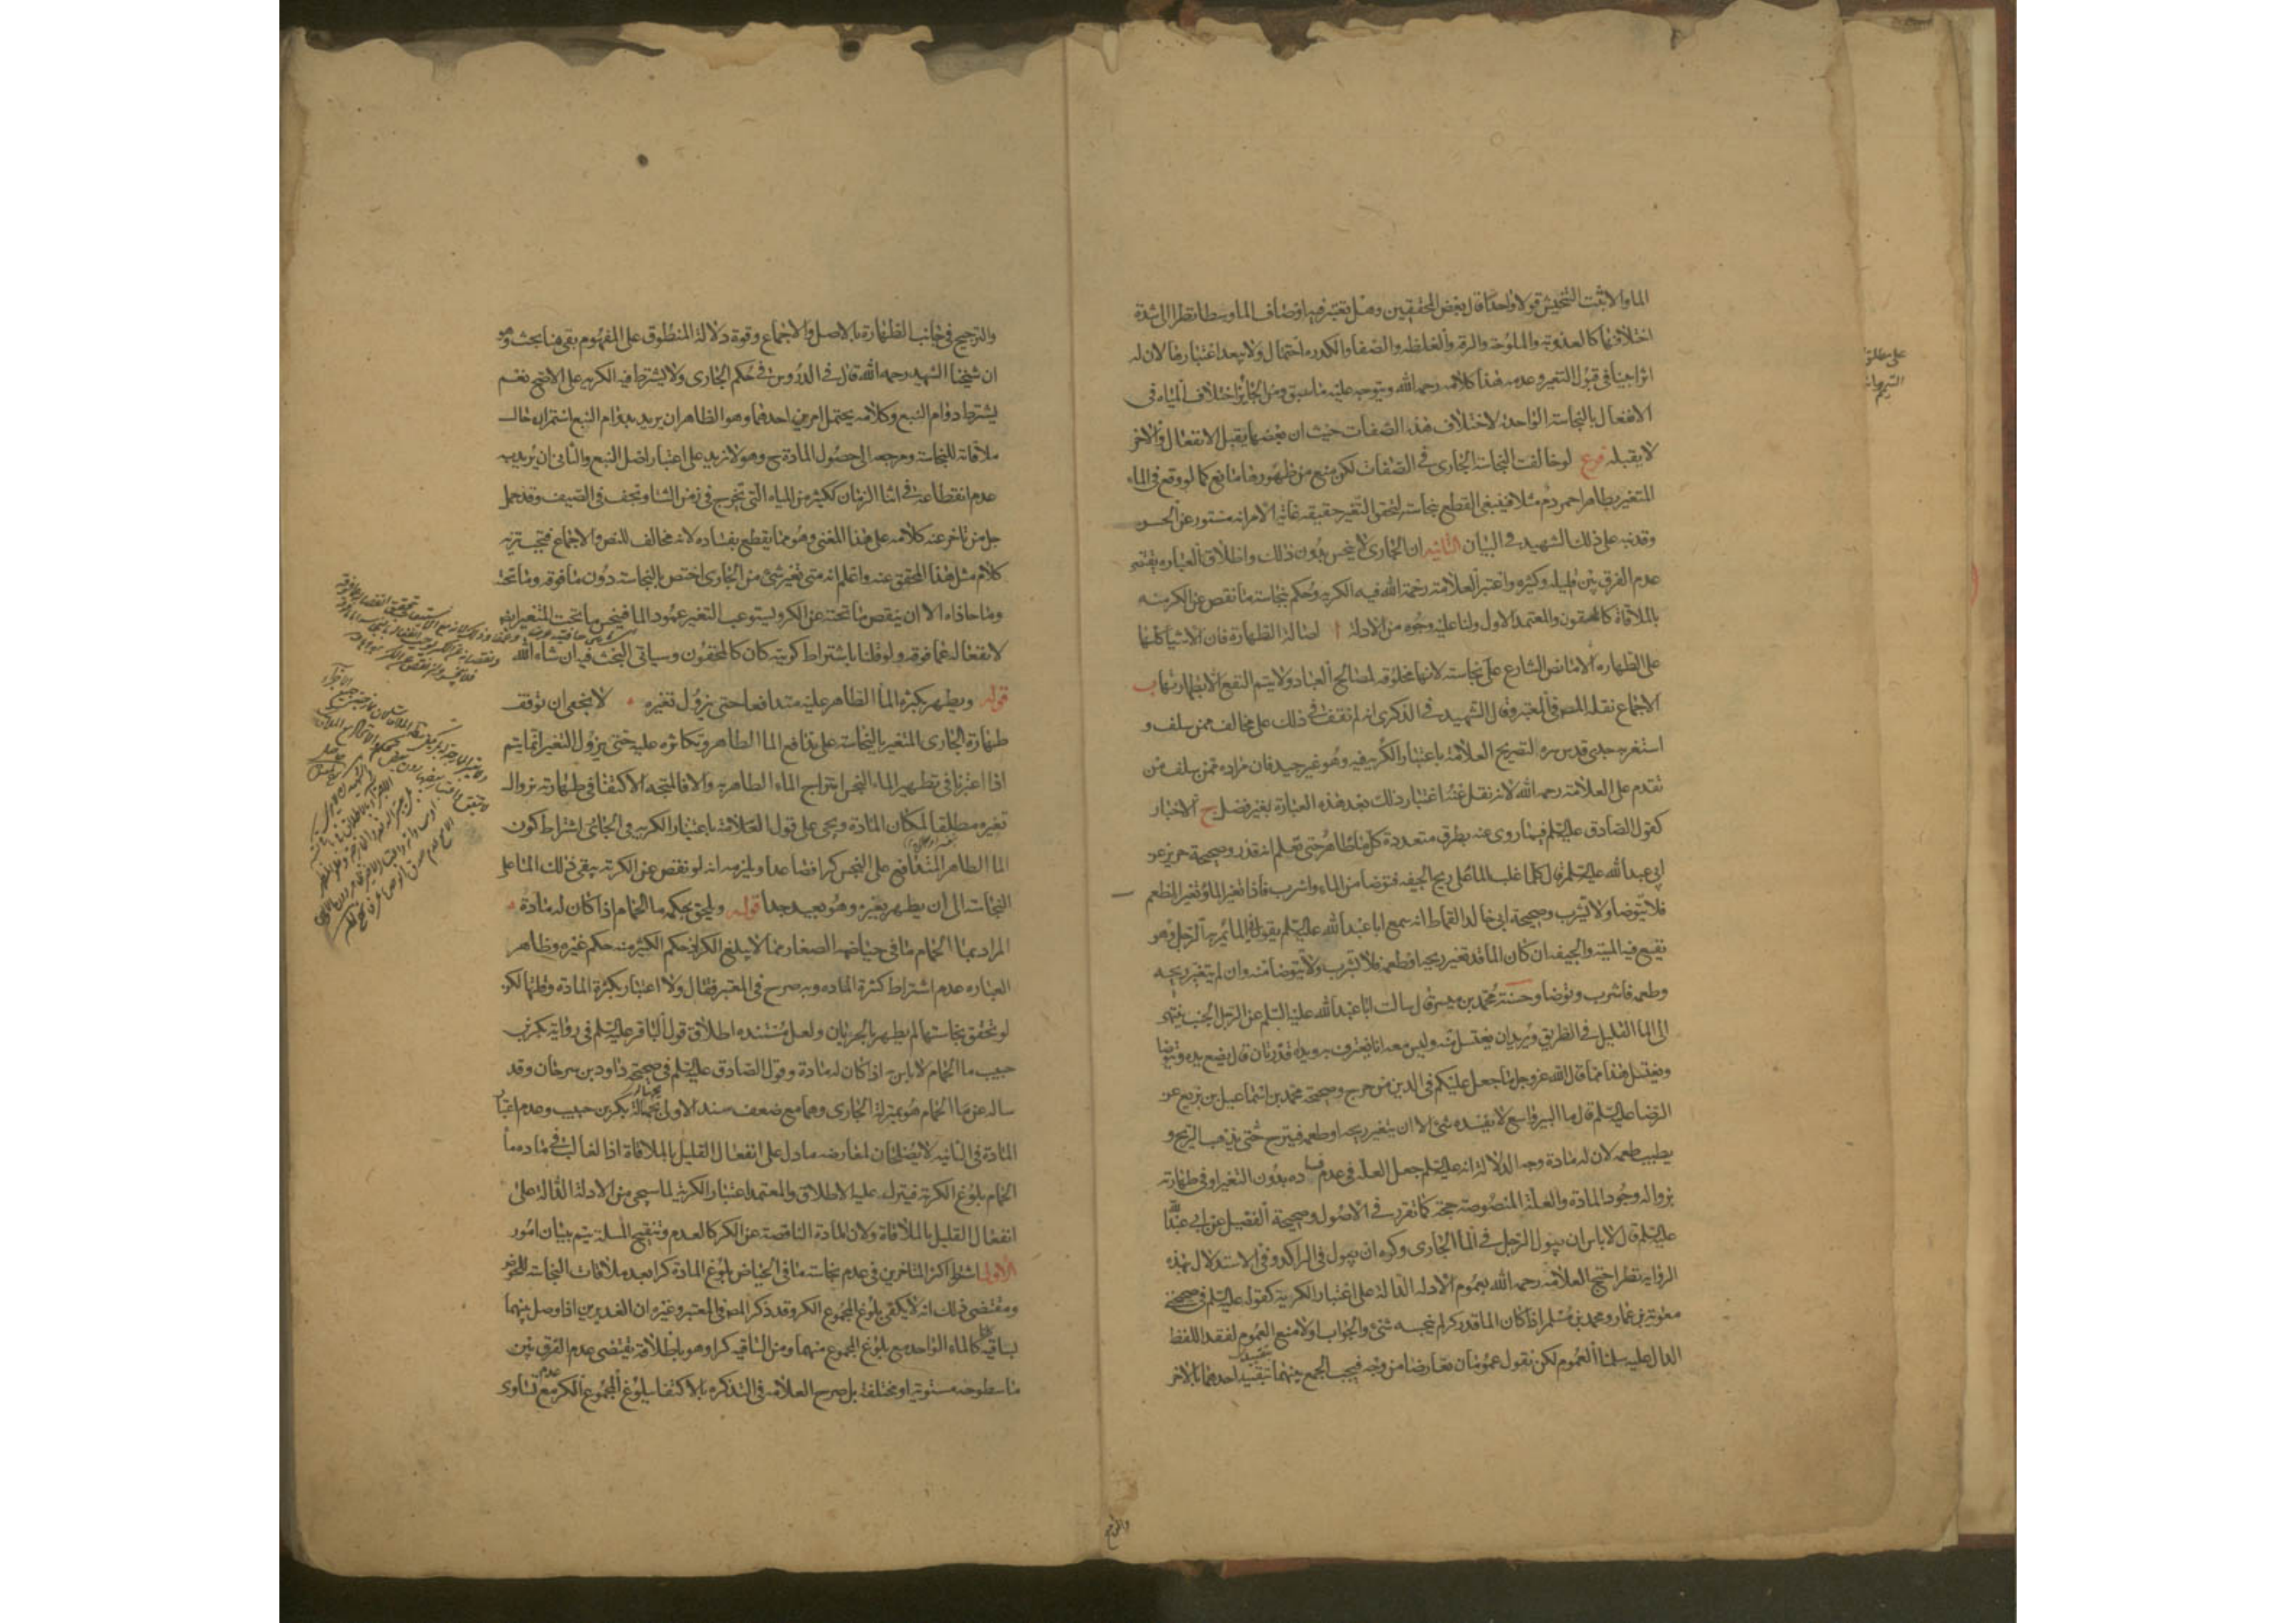 الماء والا ثبت التنجيس قولا واحدا قال بعض المحققين وهل تعتبر فيه اوصاف الماء وسطا نظرا الى شدة
اختلافها كالعذوبة والملوحة والرقة والغلظة والصفا والكدرة احتمال ولا يبعد اعتبارها لان له
اثرا بينا في قبول التغير وعدمه هذا كلامه رحمه الله ويتوجه عليه ما سبق ومن الجائز اختلاف المياه في
الانفعال بالنجاسة الواحدة لاختلاف هذه الصفات حيث ان بعضها يقبل الانفعال والاخر
لا يقبله فرع لو خالفت النجاسة الجاري في الصفات لكن منع من ظهورها مانع كما لو وقع في الماء
المتغير بطاهر احمر دم مثلا فينبغي القطع بنجاسته لتحقق التغير حقيقة غاية الامر انه مستور عن الحس
وقد نبه على ذلك الشهيد في البيان الثانية ان الجاري لا ينجس بدون ذلك واطلاق العبارة يقتضي
عدم الفرق بين قليله وكثيره واعتبر العلامة رحمة الله فيه الكرية وحكم بنجاسة ما نقص عن الكر منه
بالملاقاة كالمحقون والمعتمد الاول ولنا عليه وجوه من الادلة ا اصالة الطهارة فان الاشيا كلها
على الطهارة الا ما نص الشارع على نجاسته لانها مخلوقة لمصالح العباد ولا يتم النفع الا بطهارتها ب
الاجماع نقله المص في المعتبر وقال الشهيد في الذكرى انه لم نقف في ذلك على مخالف ممن سلف و
استغربه جدي قدس سره لتصريح العلامة باعتبار الكرية فيه وهو غير جيد فان مراده ممن سلف من
تقدم على العلامة رحمه الله لانه نقل عنه اعتبار ذلك بعد هذه العبارة بغير فصل ج الاخبار
كقول الصادق عليه السلم فيما روى عنه بطرق متعددة كل ماء طاهر حتى تعلم انه قذر وصحيحة حريز عن
ابي عبد الله عليه السلم قال كلما غلب الماء على ريح الجيفة فتوضا من الماء واشرب فاذا تغير الماء وتغير الطعم
فلا تتوضا ولا تشرب وصحيحة ابي خالد القماط انه سمع ابا عبد الله عليه السلم يقول في الماء يمر به الرجل وهو
نقيع فيه الميتة والجيفة ان كان الماء قد تغير ريحه او طعمه فلا تشرب ولا تتوضا منه وان لم يتغير ريحه
وطعمه فاشرب وتوضا وحسنة محمد بن ميسر قال سالت ابا عبد الله عليه السلم عن الرجل الجنب ينتهي
الى الماء القليل في الطريق ويريد ان يغتسل منه وليس معه اناء يغترف به ويداه قذرتان قال يضع يده ويتوضا
ويغتسل هذا مما قال الله عز وجل ما جعل عليكم في الدين من حرج وصحيحة محمد بن اسماعيل بن بزيع عن
الرضا عليه السلم قال ماء البير واسع لا يفسده شئ الا ان يتغير ريحه او طعمه فينزح حتى يذهب الريح و
يطيب طعمه لان له مادة وجه الدلالة انه عليه السلم جعل العلة في عدم فساده بدون التغير او في طهارته
بزواله وجود المادة والعلة المنصوصة حجة كما تقرر في الاصول وصحيحة الفضيل عن ابي عبد الله
عليه السلم قال لا باس ان يبول الرجل في الماء الجاري وكره ان يبول في الراكد وفي الاستدلال بهذه
الرواية نظر احتج العلامة رحمه الله بعموم الادلة الدالة على اعتبار الكرية كقوله عليه السلم في صحيحة
معوية بن عمار ومحمد بن مسلم اذا كان الماء قدر كر لم ينجسه شئ والجواب اولا منع العموم لفقد اللفظ
الدال عليه سلمنا العموم لكن نقول عمومان تعارضا من وجه فيجب الجمع بينهما بتقييد احدهما بالاخر
والترجيح
والترجيح في جانب الطهارة بالاصل والاجماع وقوة دلالة المنطوق على المفهوم بقي هنا بحث وهو
ان شيخنا الشهيد رحمه الله قال في الدروس في حكم الجاري ولا يشترط فيه الكرية على الاصح نعم
يشترط دوام النبع وكلامه يحتمل امرين احدهما وهو الظاهر ان يريد بدوام النبع استمراره حال
ملاقاته للنجاسة ومرجعه الى حصول المادة ح وهو لا يزيد على اعتبار اصل النبع والثاني ان يريد به
عدم انقطاعه في اثنا الزمان ككثير من المياه التي تخرج في زمن الشتا وتجف في الصيف وقد حمل
جل من تاخر عنه كلامه على هذا المعنى وهو مما يقطع بفساده لانه مخالف للنص والاجماع فيجب تنزيه
كلام مثل هذا المحقق عنه واعلم انه متى تغير شئ من الجاري اختص بالنجاسة دون ما فوقه وما تحته
وما حاذاه الا ان ينقص ما تحته عن الكر ويستوعب التغير عمود الماء فينجس ما تحت المتغير ايضا
لانفعاله عما فوقه ولو قلنا باشتراط كريته كان كالمحقون وسياتي البحث فيه ان شاء الله
قوله ويطهر بكثرة الماء الطاهر عليه متدافعا حتى يزول تغيره لا يخفى ان توقف
طهارة الجاري المتغير بالنجاسة على تدافع الماء الطاهر وتكاثره عليه حتى يزول التغير انما يتم
اذا اعتبرنا في تطهير الماء النجس امتزاج الماء الطاهر به والا فالمتجه الاكتفا في طهارته بزوال
تغيره مطلقا لمكان المادة ويجئ على قول العلامة باعتبار الكرية في الجاري اشتراط كون
الماء الطاهر المتدافع على النجس كرا فصاعدا ويلزمه انه لو نقص عن الكرية بقي ذلك الماء على
النجاسة الى ان يطهر بغيره وهو بعيد جدا قوله ويلحق بحكمه ماء الحمام اذا كان له مادة
المراد بماء الحمام ما في حياضه الصغار مما لا يبلغ الكر اذ حكم الكثير منه حكم غيره وظاهر
العبارة عدم اشتراط كثرة المادة وبه صرح في المعتبر فقال ولا اعتبار بكثرة المادة وقلتها لكن
لو تحقق نجاستها لم يطهر بالجريان ولعل مستنده اطلاق قول الباقر عليه السلم في رواية بكر بن
حبيب ماء الحمام لا باس به اذا كان له مادة وقول الصادق عليه السلم في صحيحة داود بن سرحان وقد
ساله عن ماء الحمام هو بمنزلة الجاري وهما مع ضعف سند الاولى بجهالة بكر بن حبيب وعدم اعتبار
المادة في الثانية لا يصلحان لمعارضة ما دل على انفعال القليل بالملاقاة اذ الغالب في مادة ماء
الحمام بلوغ الكرية فينزل عليه الاطلاق والمعتمد اعتبار الكرية لما سيجئ من الادلة الدالة على
انفعال القليل بالملاقاة ولان المادة الناقصة عن الكر كالعدم وتنقيح المسئلة يتم ببيان امور
الاول اشترط اكثر المتاخرين في عدم نجاسة ما في الحياض بلوغ المادة كرا بعد ملاقات النجاسة للحوض
ومقتضى ذلك انه لا يكفي بلوغ المجموع الكر وقد ذكر المص في المعتبر وغيره ان الغديرين اذا وصل بينهما
بساقية كانا كالماء الواحد مع بلوغ المجموع منهما ومن الساقية كرا وهو باطلاقه يقتضي عدم الفرق بين
ما سطوحه مستوية او مختلفة بل صرح العلامة في التذكرة بالاكتفا ببلوغ المجموع الكر مع عدم تساوي